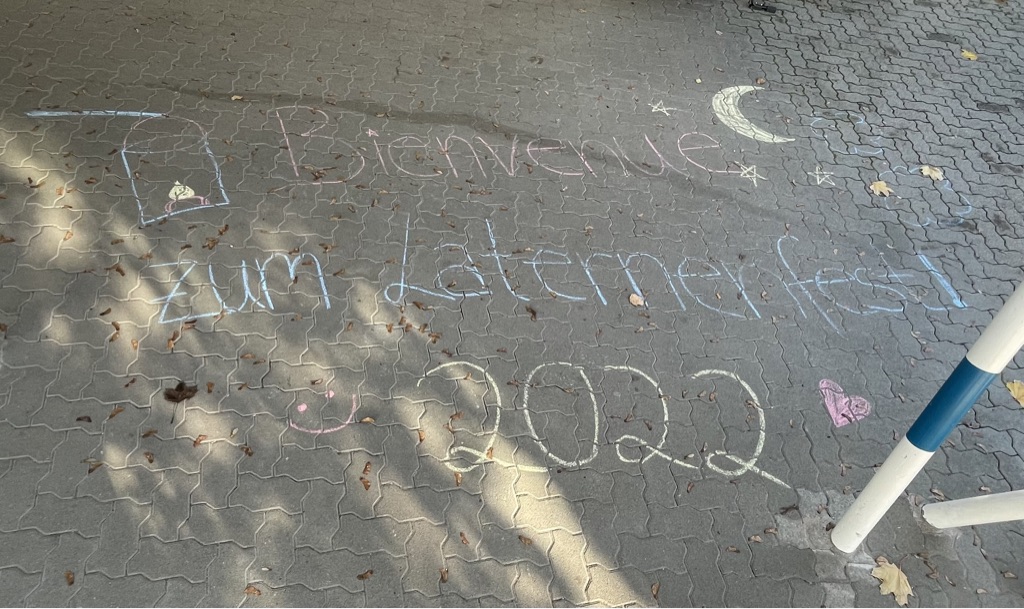 Bienvenue
zum Laternenfest!
2022